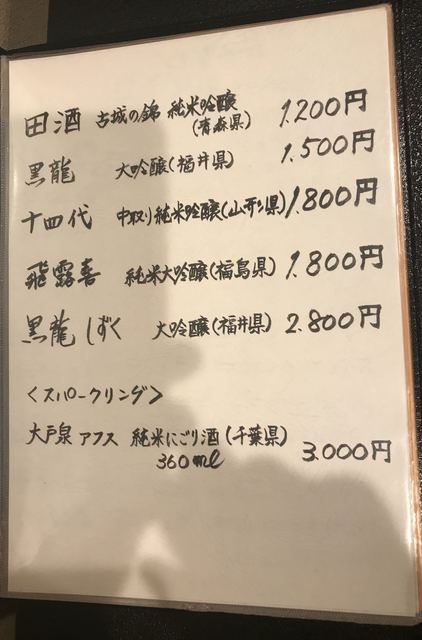 田酒 古城の錦 純米吟醸 1.200円
(青森県)
黒龍 大吟醸(福井県) 1.500円
十四代 中取り純米吟醸(山形県) 1.800円
飛露喜 純米大吟醸(福島県) 1.800円
黒龍 しずく 大吟醸(福井県) 2.800円
<スパークリング>
木戸泉 アフス 純米にごり酒(千葉県) 3.000円
360ml